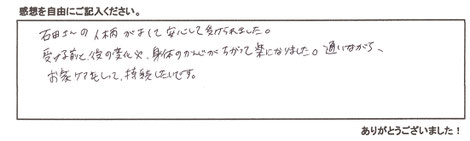 感想を自由にご記入ください。
石田さんの人柄がよくて安心して受けられました。
受ける前と後の変化や、身体のかんじがちがって楽になりました。通いながら、
お家ケアをして、持続したいです。
ありがとうございました！